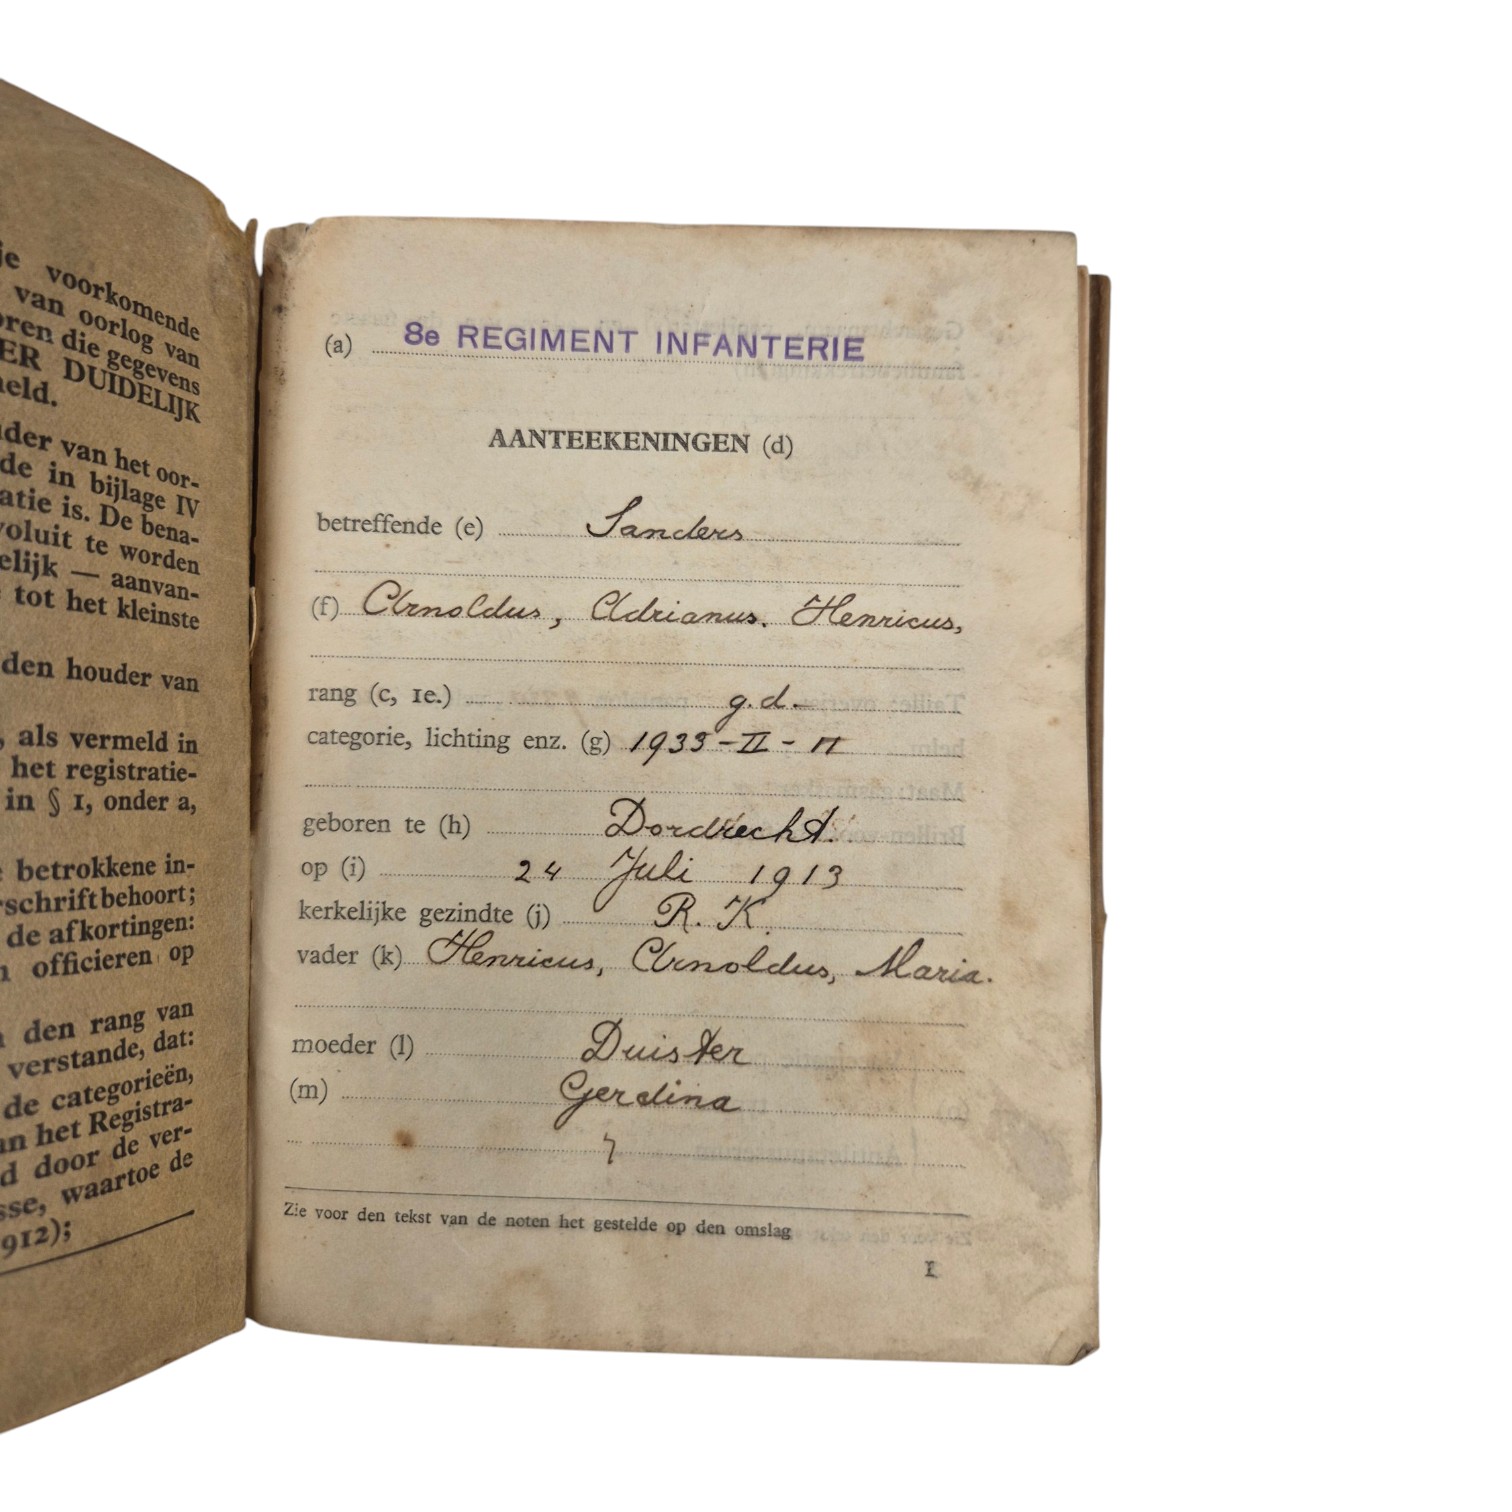 je voorkomende
van oorlog van
die gegevens
DUIDELIJK
van het oor-
de in bijlage IV
is. De bena-
voluit te worden
— aanvan-
tot het kleinste
den houder van
, als vermeld in
het registratie-
in § 1, onder a,
betrokkene in-
behoort;
de afkortingen:
officieren op
den rang van
verstande, dat:
de categorieën,
het Registra-
door de ver-
waartoe de
912);
(a) 8e REGIMENT INFANTERIE
AANTEEKENINGEN (d)
betreffende (e) Sanders
(f) Arnoldus, Adrianus. Henricus,
rang (c, 1e.) g.d.
categorie, lichting enz. (g) 1933-II-
geboren te (h) Dordrecht.
op (i) 24 Juli 1913
kerkelijke gezindte (j) R. K.
vader (k) Henricus, Arnoldus, Maria.
moeder (l) Duister
(m) Gerdina
Zie voor den tekst van de noten het gestelde op den omslag
1